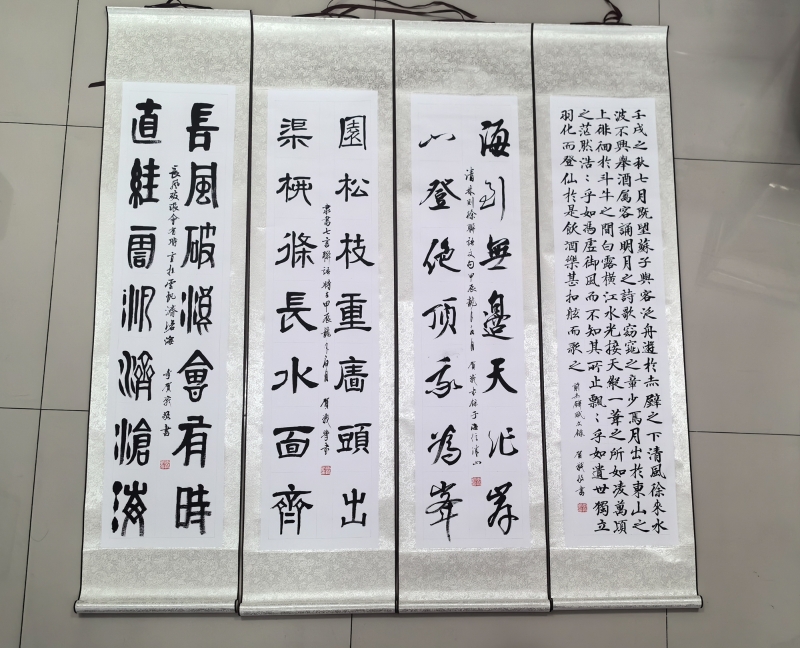 壬戌之秋七月既望蘇子與客泛舟遊於赤壁之下清風徐來水
波不興舉酒属客誦明月之詩歌窈窕之章少焉月出於東山之
上徘徊於斗牛之間白露橫江水光接天縱一葦之所如凌萬頃
之茫然浩々乎如馮虛御風而不知其所止飄々乎如遺世獨立
羽化而登仙於是飲酒樂甚扣舷而歌之
前赤壁賦
海到無邊天作岸
山登絕頂我為峯
清林則徐聯語 甲辰龍年
園松枝重牆頭出
渠柳條長水面齊
隸書七言聯語 甲辰龍年
長風破浪會有時
直挂雲帆濟滄海
長風破浪會有時 直挂雲帆濟滄海